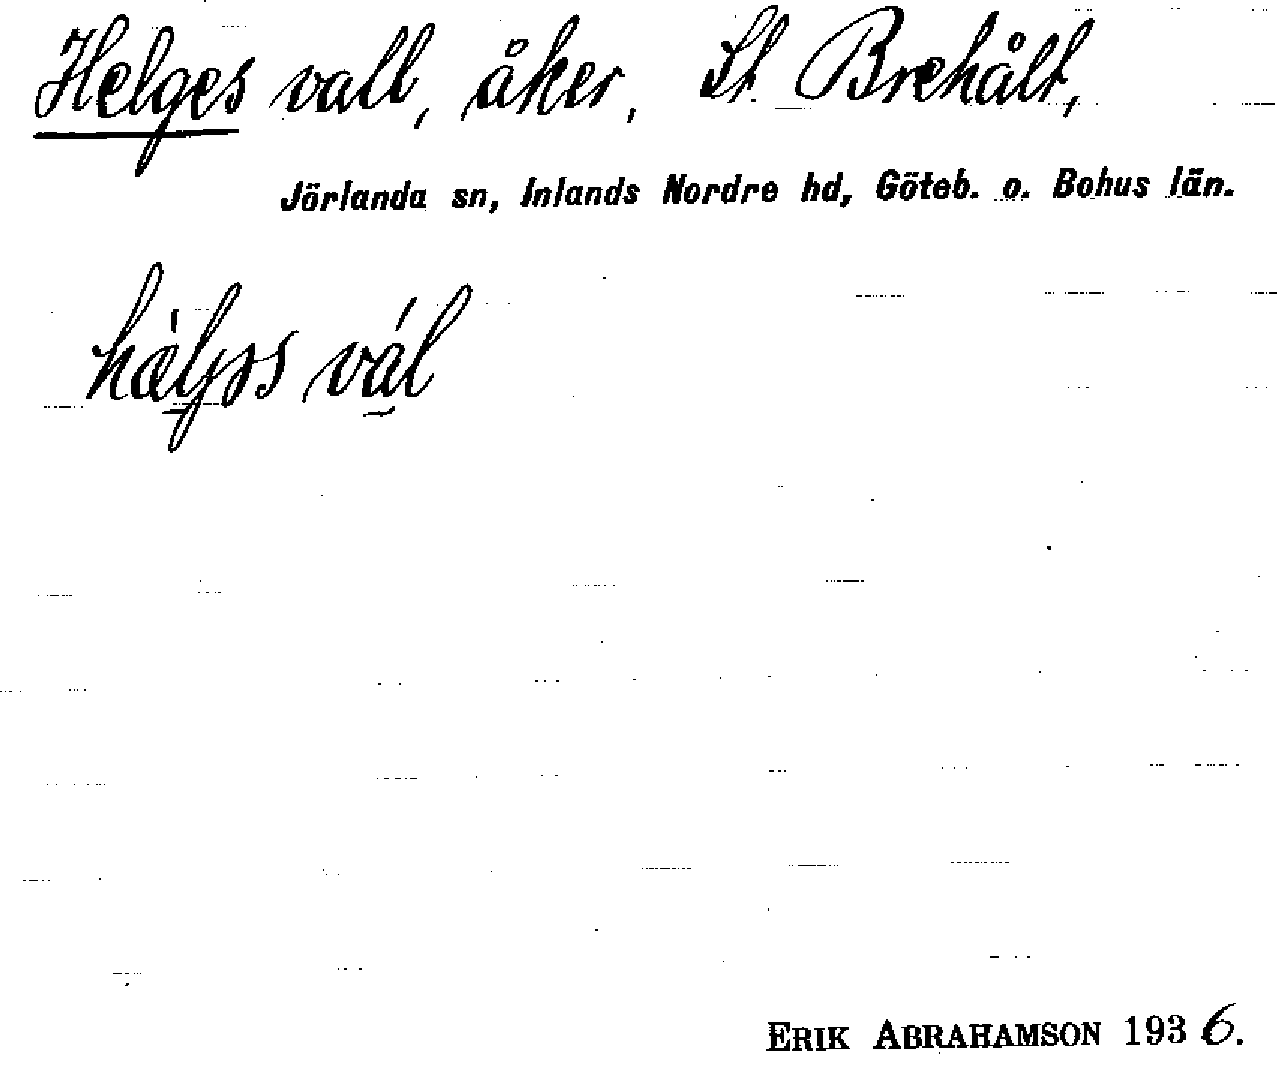 Helges vall, åker, St. Brehålt,
Jörlanda sn, Inlands Nordre hd, Göteb. o. Bohus län.
hæ̀ljəs vál
ERIK ABRAHAMSON 1936.